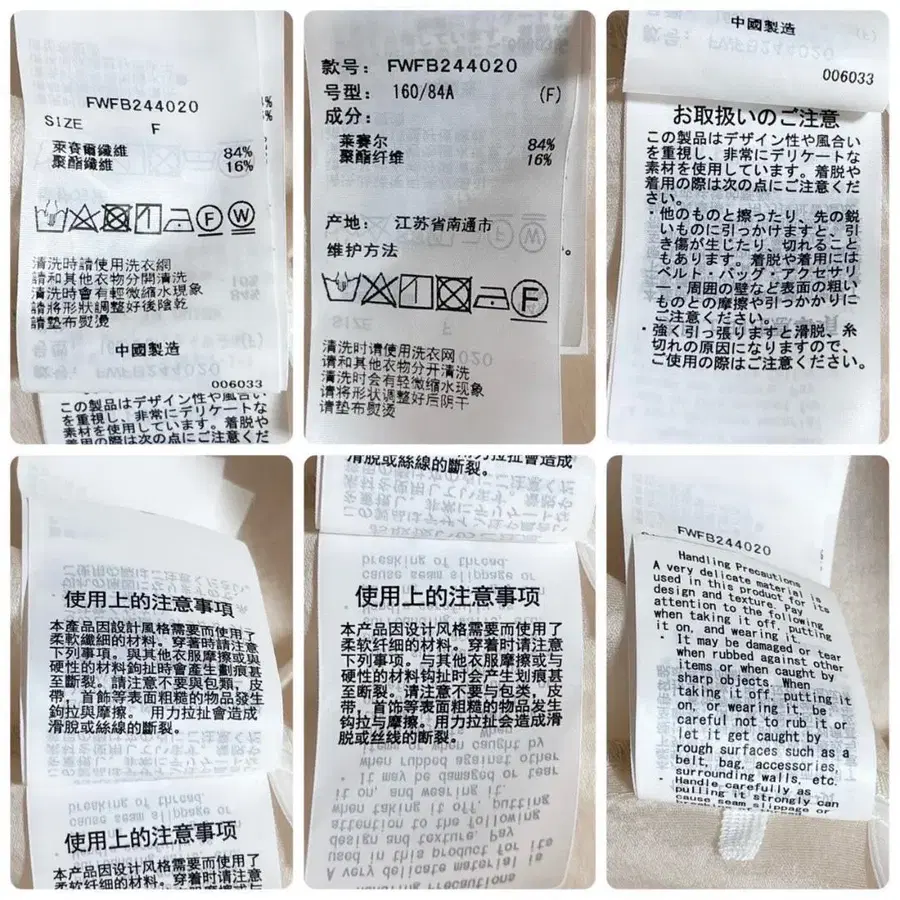 FWFB244020
SIZE F
萊賽爾纖維 84%
聚酯纖維 16%
F W
清洗時請使用洗衣網
請和其他衣物分開清洗
清洗時會有輕微縮水現象
請將形狀調整好後陰乾
請墊布熨燙
中國製造
006033
この製品はデザイン性や風合い
を重視し、非常にデリケートな
素材を使用しています。着脱や
着用の際は次の点にご注意くだ
款号: FWFB244020
号型: 160/84A (F)
成分:
莱赛尔 84%
聚酯纤维 16%
产地: 江苏省南通市
维护方法
F
清洗时请使用洗衣网
请和其他衣物分开清洗
清洗时会有轻微缩水现象
请将形状调整好后阴干
请垫布熨烫
中國製造
006033
お取扱いのご注意
この製品はデザイン性や風合い
を重視し、非常にデリケートな
素材を使用しています。着脱や
着用の際は次の点にご注意くだ
さい。
・他のものと擦ったり、先の鋭
いものに引っかけますと、引
き傷が生じたり、切れること
もあります。着脱や着用には
ベルト・バッグ・アクセサリ
ー・周囲の壁など表面の粗い
ものとの摩擦や引っかかりに
ご注意ください。
・強く引っ張りますと滑脱、糸
切れの原因になりますので、
ご使用の際はご注意ください。
使用上的注意事項
本產品因設計風格需要而使用了
柔軟纖細的材料。穿着時請注意
下列事項。與其他衣服摩擦或與
硬性的材料鉤扯時會產生劃痕甚
至斷裂。請注意不要與包類，皮
帶，首飾等表面粗糙的物品發生
鉤拉與摩擦。用力拉扯會造成
滑脫或絲線的斷裂。
使用上的注意事项
本产品因设计风格需要而使用了
柔软纤细的材料。穿着时请注意
滑脫或絲線的斷裂。
使用上的注意事项
本产品因设计风格需要而使用了
柔软纤细的材料。穿着时请注意
下列事项。与其他衣服摩擦或与
硬性的材料钩扯时会产生划痕甚
至断裂。请注意不要与包类，皮
带，首饰等表面粗糙的物品发生
钩拉与摩擦。用力拉扯会造成滑
脱或丝线的断裂。
FWFB244020
Handling Precautions
A very delicate material is
used in this product for its
design and texture. Pay
attention to the following
when taking it off, putting
it on, and wearing it.
・ It may be damaged or tear
when rubbed against other
items or when caught by
sharp objects. When
taking it off, putting it
on, or wearing it, be
careful not to rub it or
let it get caught by
rough surfaces such as a
belt, bag, accessories,
surrounding walls, etc.
・ Handle carefully as
pulling it strongly can
cause seam slippage or